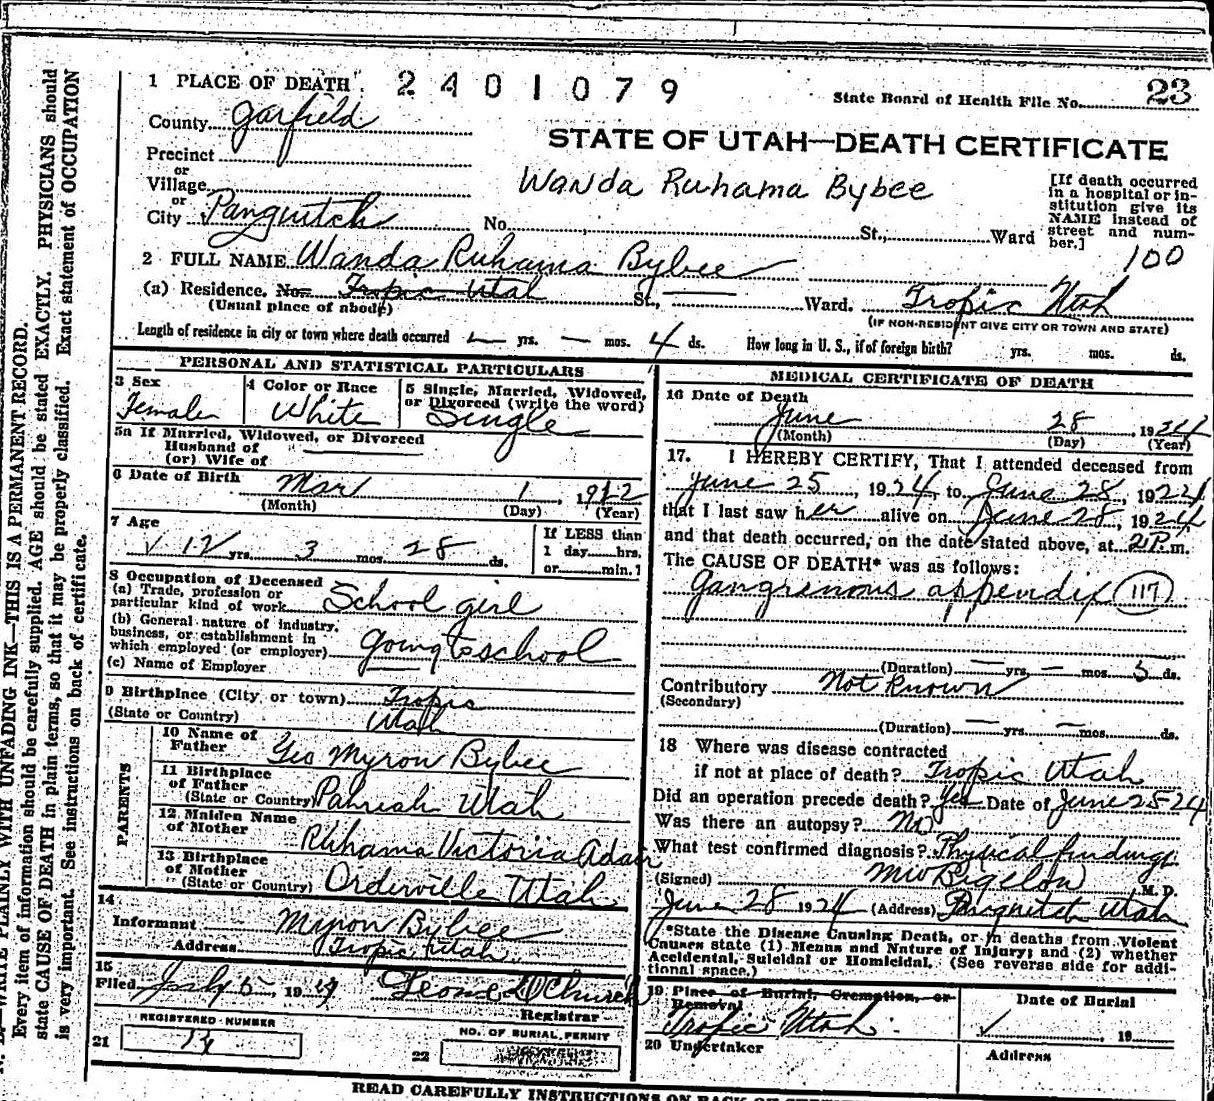 1 PLACE OF DEATH 2401079
State Board of Health File No. 23
County Garfield
STATE OF UTAH—DEATH CERTIFICATE
Precinct
or
Village
Wanda Ruhama Bybee
[If death occurred
in a hospital or in-
stitution give its
NAME instead of
street and num-
ber.]
or
City Panguitch No. St., Ward
100
2 FULL NAME Wanda Ruhama Bybee
(a) Residence. No. Tropic Utah St., Ward. Tropic Utah
(Usual place of abode)
(IF NON-RESIDENT GIVE CITY OR TOWN AND STATE)
Length of residence in city or town where death occurred — yrs. — mos. 4 ds. How long in U. S., if of foreign birth? yrs. mos. ds.
PERSONAL AND STATISTICAL PARTICULARS
3 Sex
Female
4 Color or Race
White
5 Single, Married, Widowed,
or Divorced (write the word)
Single
5a If Married, Widowed, or Divorced
Husband of
(or) Wife of
6 Date of Birth Mar 1, 1912
(Month) (Day) (Year)
7 Age
12 yrs. 3 mos. 28 ds.
If LESS than
1 day hrs.
or min.?
8 Occupation of Deceased
(a) Trade, profession or
particular kind of work School girl
(b) General nature of industry,
business, or establishment in
which employed (or employer) going to school
(c) Name of Employer
9 Birthplace (City or town) Tropic
(State or Country) Utah
PARENTS
10 Name of
Father Geo Myron Bybee
11 Birthplace
of Father
(State or Country) Pahreah Utah
12 Maiden Name
of Mother Ruhama Victoria Adair
13 Birthplace
of Mother
(State or Country) Orderville Utah
14
Informant Myron Bybee
Address Tropic, Utah
15
Filed July 5, 19
Registrar
REGISTERED NUMBER
21 14
NO. OF BURIAL PERMIT
22
MEDICAL CERTIFICATE OF DEATH
16 Date of Death
June 28, 1924
(Month) (Day) (Year)
17. I HEREBY CERTIFY, That I attended deceased from
June 25, 1924, to June 28, 1924
that I last saw her alive on June 28, 1924
and that death occurred, on the date stated above, at 2P.m.
The CAUSE OF DEATH* was as follows:
Gangrenous appendix 117
(Duration) — yrs. — mos. 5 ds.
Contributory Not known
(Secondary)
(Duration) — yrs. — mos. ds.
18 Where was disease contracted
if not at place of death? Tropic Utah
Did an operation precede death? Yes Date of June 25 24
Was there an autopsy? No
What test confirmed diagnosis? Physical findings
(Signed) MW Bigelow M. D.
June 28 1924 (Address) Panguitch Utah
*State the Disease Causing Death, or in deaths from Violent
Causes state (1) Means and Nature of Injury; and (2) whether
Accidental, Suicidal or Homicidal. (See reverse side for addi-
tional space.)
19 Place of Burial, Cremation, or
Removal
Tropic Utah
Date of Burial
19
20 Undertaker
Address
READ CAREFULLY INSTRUCTIONS ON BACK OF
WRITE PLAINLY WITH UNFADING INK—THIS IS A PERMANENT RECORD.
Every item of information should be carefully supplied. AGE should be stated EXACTLY. PHYSICIANS should
state CAUSE OF DEATH in plain terms, so that it may be properly classified. Exact statement of OCCUPATION
is very important. See instructions on back of certificate.